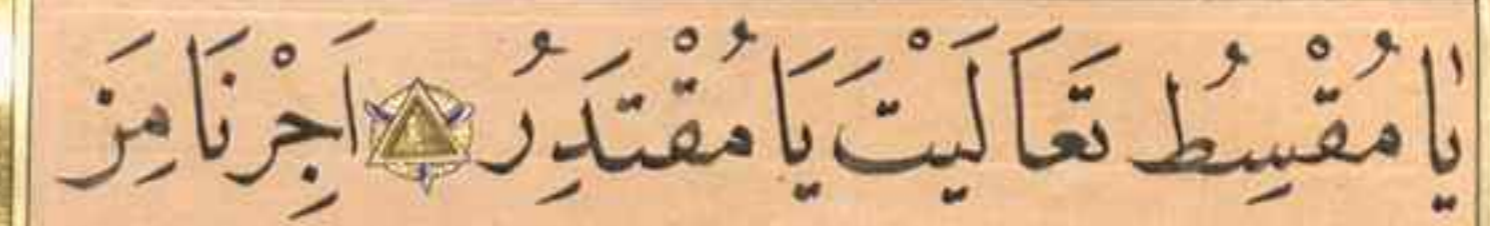 يَا مُقْسِطُ تَعَالَيْتَ يَا مُقْتَدِرُ اَجِرْنَا مِنَ